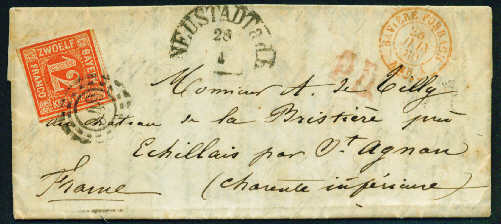 BAYERN
ZWOELF
12
FRANCO
NEUSTADT a/H.
28
4
BAVIERE FORBACH
PD
Monsieur A. de Tilly
au château de la Bristière près
Echillais par St. Agnan
France (Charente inférieure)